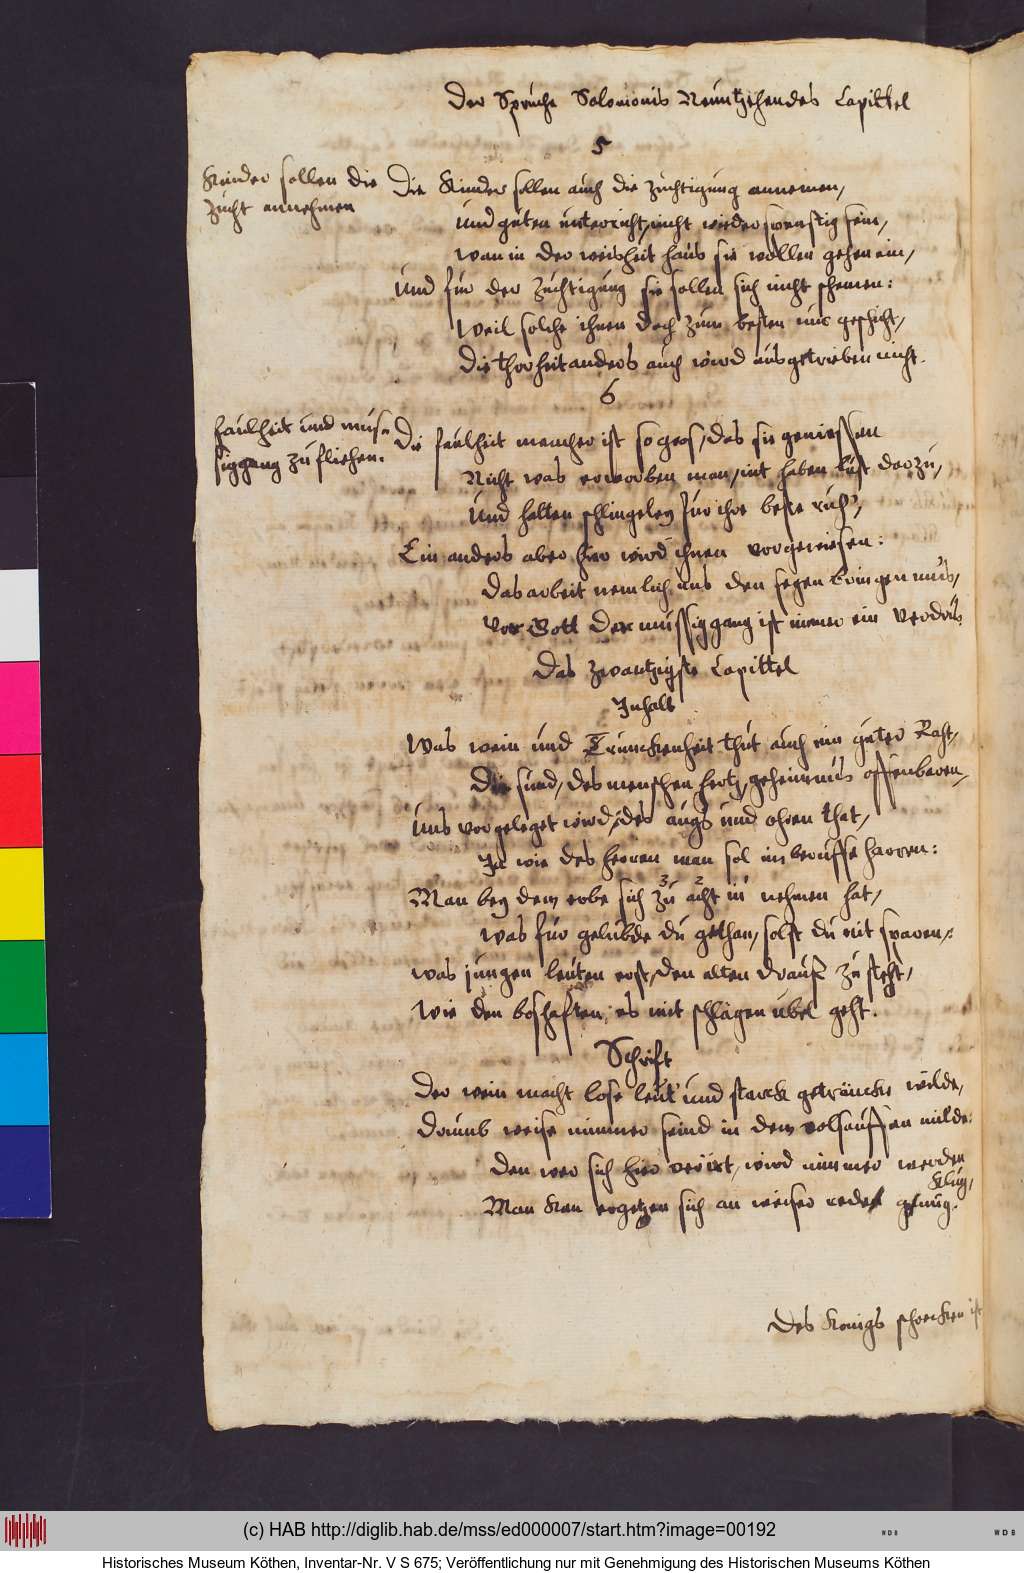 Der Sprüche Solomonis Neuntzehendes Capittel
5
Kinder sollen die
zucht annehmen
Die Kinder sollen auch die züchtigung annemen,
und guten unterricht, nicht wiederspenstig sein,
wan in der weisheit haus sie wollen gehen ein,
Und für der züchtigung sie sollen sich nicht schemen:
Weil solche ihnen doch zum besten nur geschicht,
Die thorheit anders auch wird ausgetrieben nicht.
6
Faulheit und müs-
siggang zu fliehen.
Die faulheit mancher ist so gros, das sie geniessen
Nicht was erworben man, nit haben lust darzu,
Und halten schlingeley für ihre beste ruh,
Ein anders aber hier wird ihnen vorgewiesen:
Das arbeit nemlich uns den segen bringen mus,
Vor Gott der müssiggang ist immer ein verdrus.
Das zwantzigste Capittel
Inhalt
Was wein und Trunckenheit thut auch ein guter Raht,
Die sünd, des menschen hertz, geheimnus offenbaren,
Uns vorgeleget wird, des augs und ohren that,
In wie des herren man sol im beruffe harren:
Man bey dem erbe sich zu acht in nehmen hat,
3 2
was für gelübde du gethan, solst du nit sparen,
was jungen leuten erst, den alten drauf zu steht,
Wie den boshaften es mit schlägen übel geht.
Schrift
Der wein macht lose leut' und starck geträncke wilde,
Drumb weise nimmer seind in dem volsauffen milde:
Den wer sich hier verirt, wird nimmer werden
klug,
Man kan ergetzen sich an weiser rede genug.
Des Königs schrecken ist
(c) HAB http://diglib.hab.de/mss/ed000007/start.htm?image=00192
WDB
WDB
Historisches Museum Köthen, Inventar-Nr. V S 675; Veröffentlichung nur mit Genehmigung des Historischen Museums Köthen